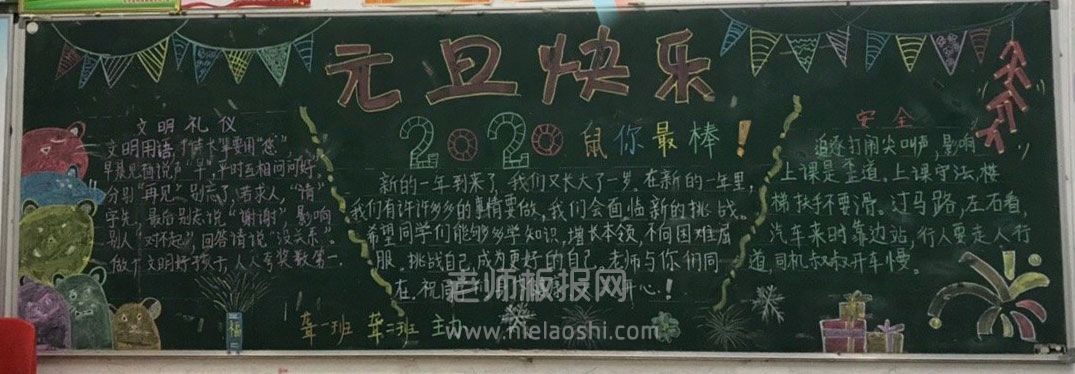 元旦快乐
2020鼠你最棒！
文明礼仪
文明用语 长辈要用"您"，
早晨见面说声"早"，平时互相问问好，
分别"再见"别忘了，若求人，"请"
字先，最后别忘说"谢谢"，影响
别人"对不起"，回答请说"没关系"。
做个文明好孩子，人人夸奖数第一。
新的一年到来了，我们又长大了一岁。在新的一年里，
我们有许许多多的事情要做，我们会面临新的挑战。
希望同学们能够多学知识，增长本领，不向困难屈
服。挑战自己，成为更好的自己。老师与你们同
在。祝 开心！
聋一班 聋二班 主办
安全
追逐打闹尖叫声，影响
上课是歪道。上课守法，楼
梯扶手不要滑。过马路，左右看，
汽车来时靠边站，行人要走人行
道，司机叔叔开车慢。
福
老师板报网
www.nielaoshi.com